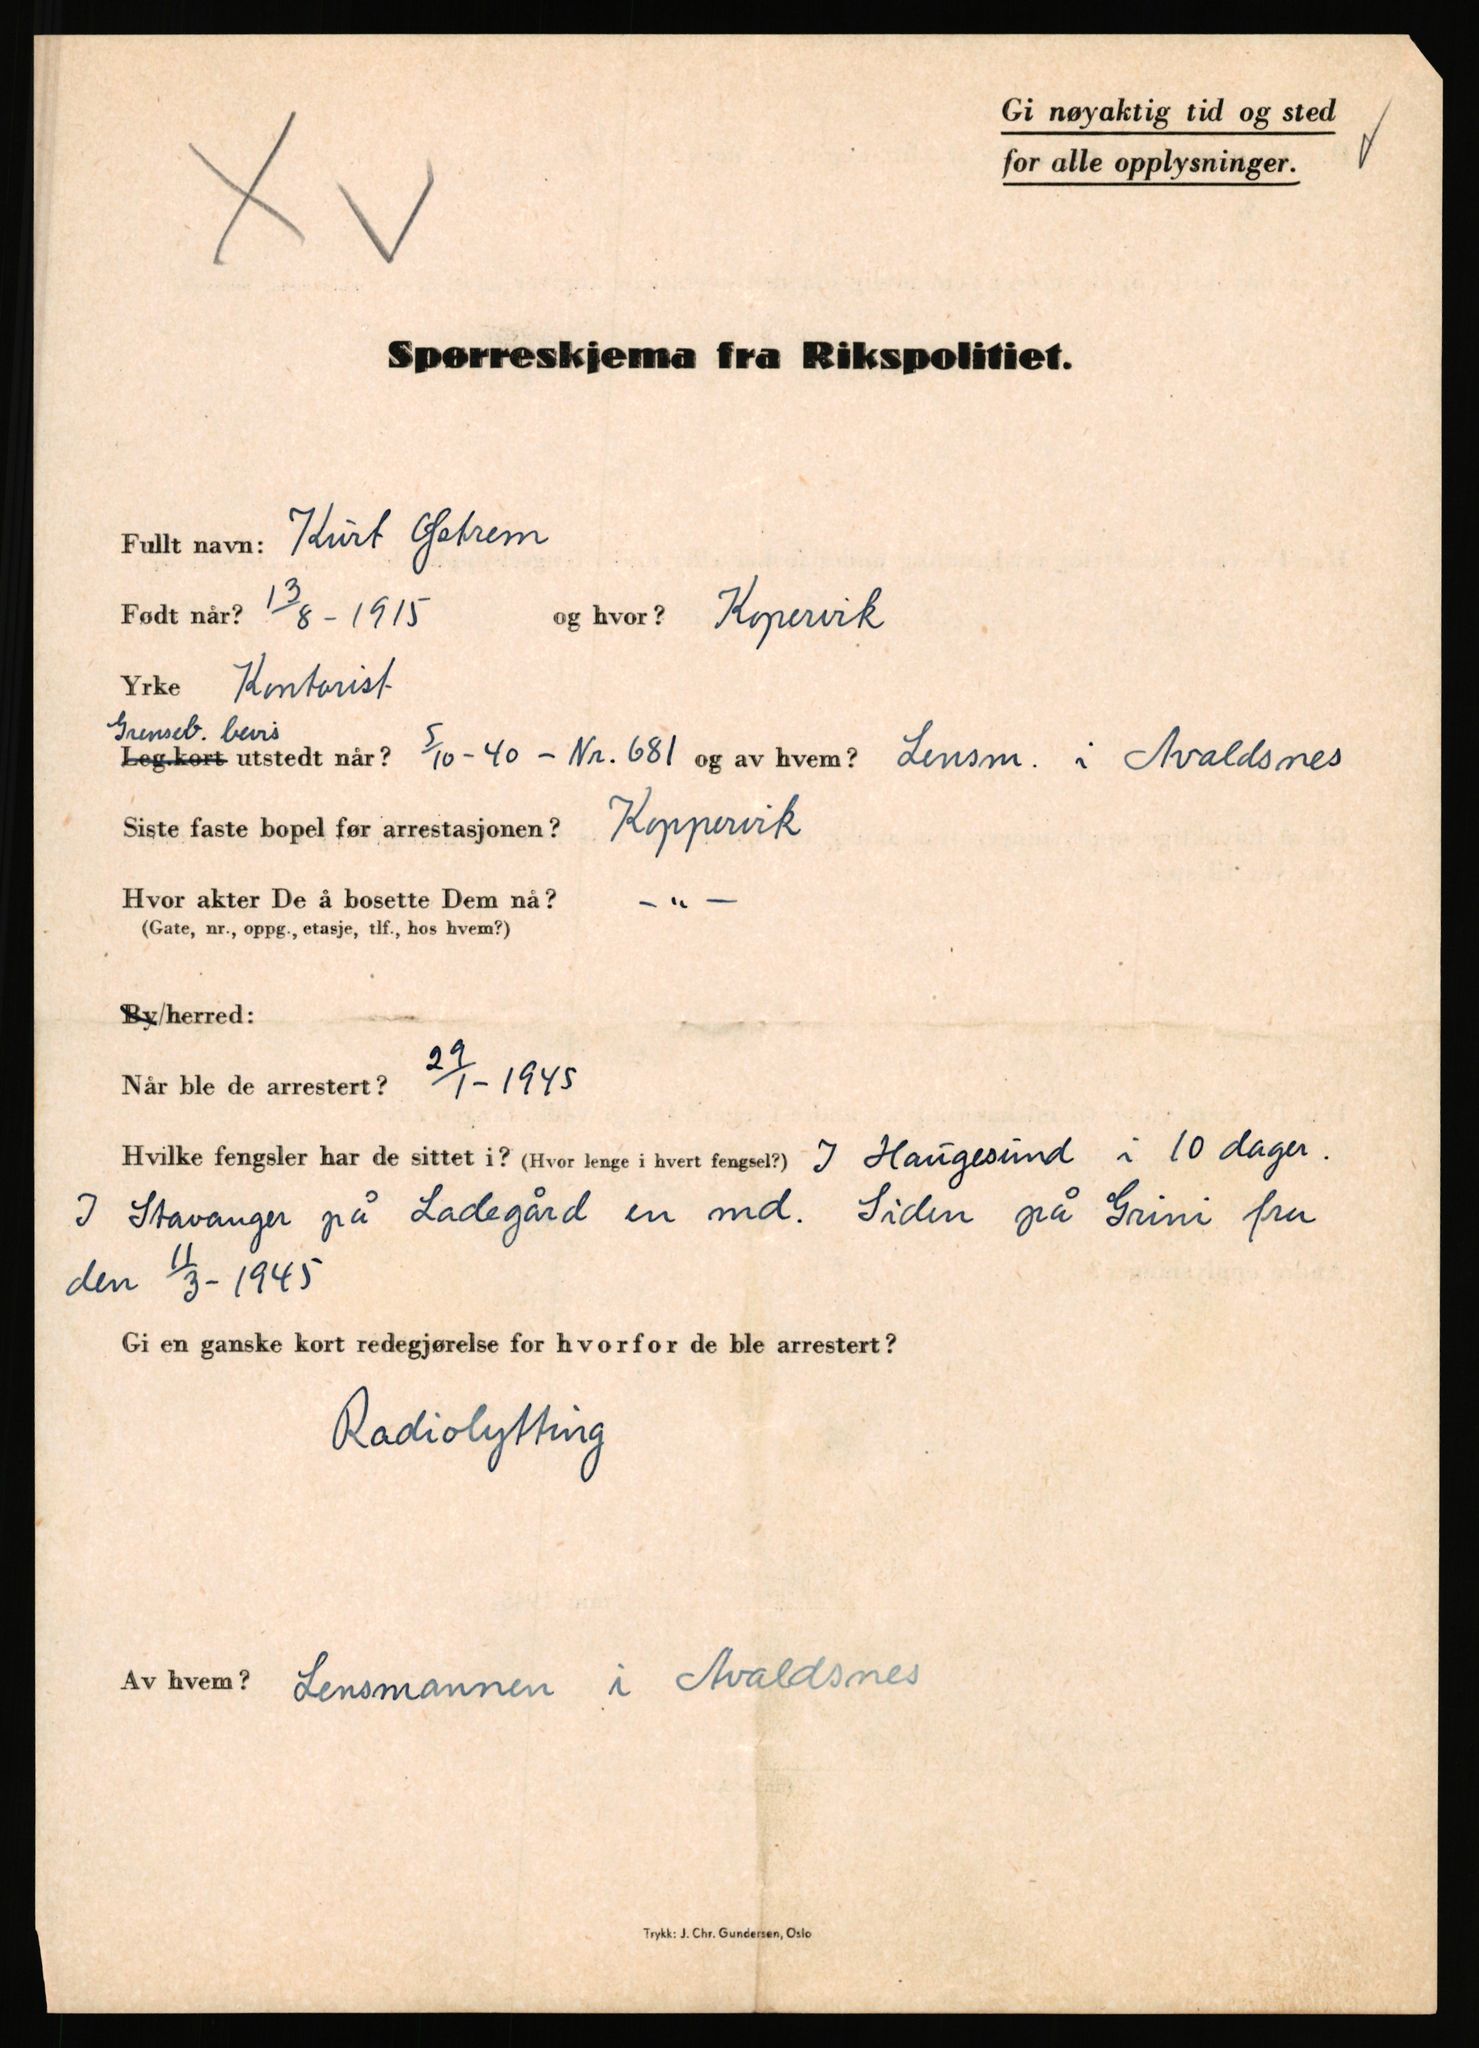 Gi nøyaktig tid og sted
for alle opplysninger.
Spørreskjema fra Rikspolitiet.
Fullt navn: Kurt Østrem
Født når? 13/8 - 1915 og hvor? Kopervik
Yrke Kontorist
Grenseb. bevis
Leg.kort utstedt når? 5/10 - 40 - Nr. 681 og av hvem? Lensm. i Avaldsnes
Siste faste bopel før arrestasjonen? Koppervik
Hvor akter De å bosette Dem nå? - " -
(Gate, nr., oppg., etasje, tlf., hos hvem?)
By/herred:
Når ble de arrestert? 29/1 - 1945
Hvilke fengsler har de sittet i? (Hvor lenge i hvert fengsel?) I Haugesund i 10 dager.
I Stavanger på Ladegård en md. Siden på Grini fra
den 11/3 - 1945
Gi en ganske kort redegjørelse for hvorfor de ble arrestert?
Radiolytting
Av hvem? Lensmannen i Avaldsnes
Trykk: J. Chr. Gundersen, Oslo